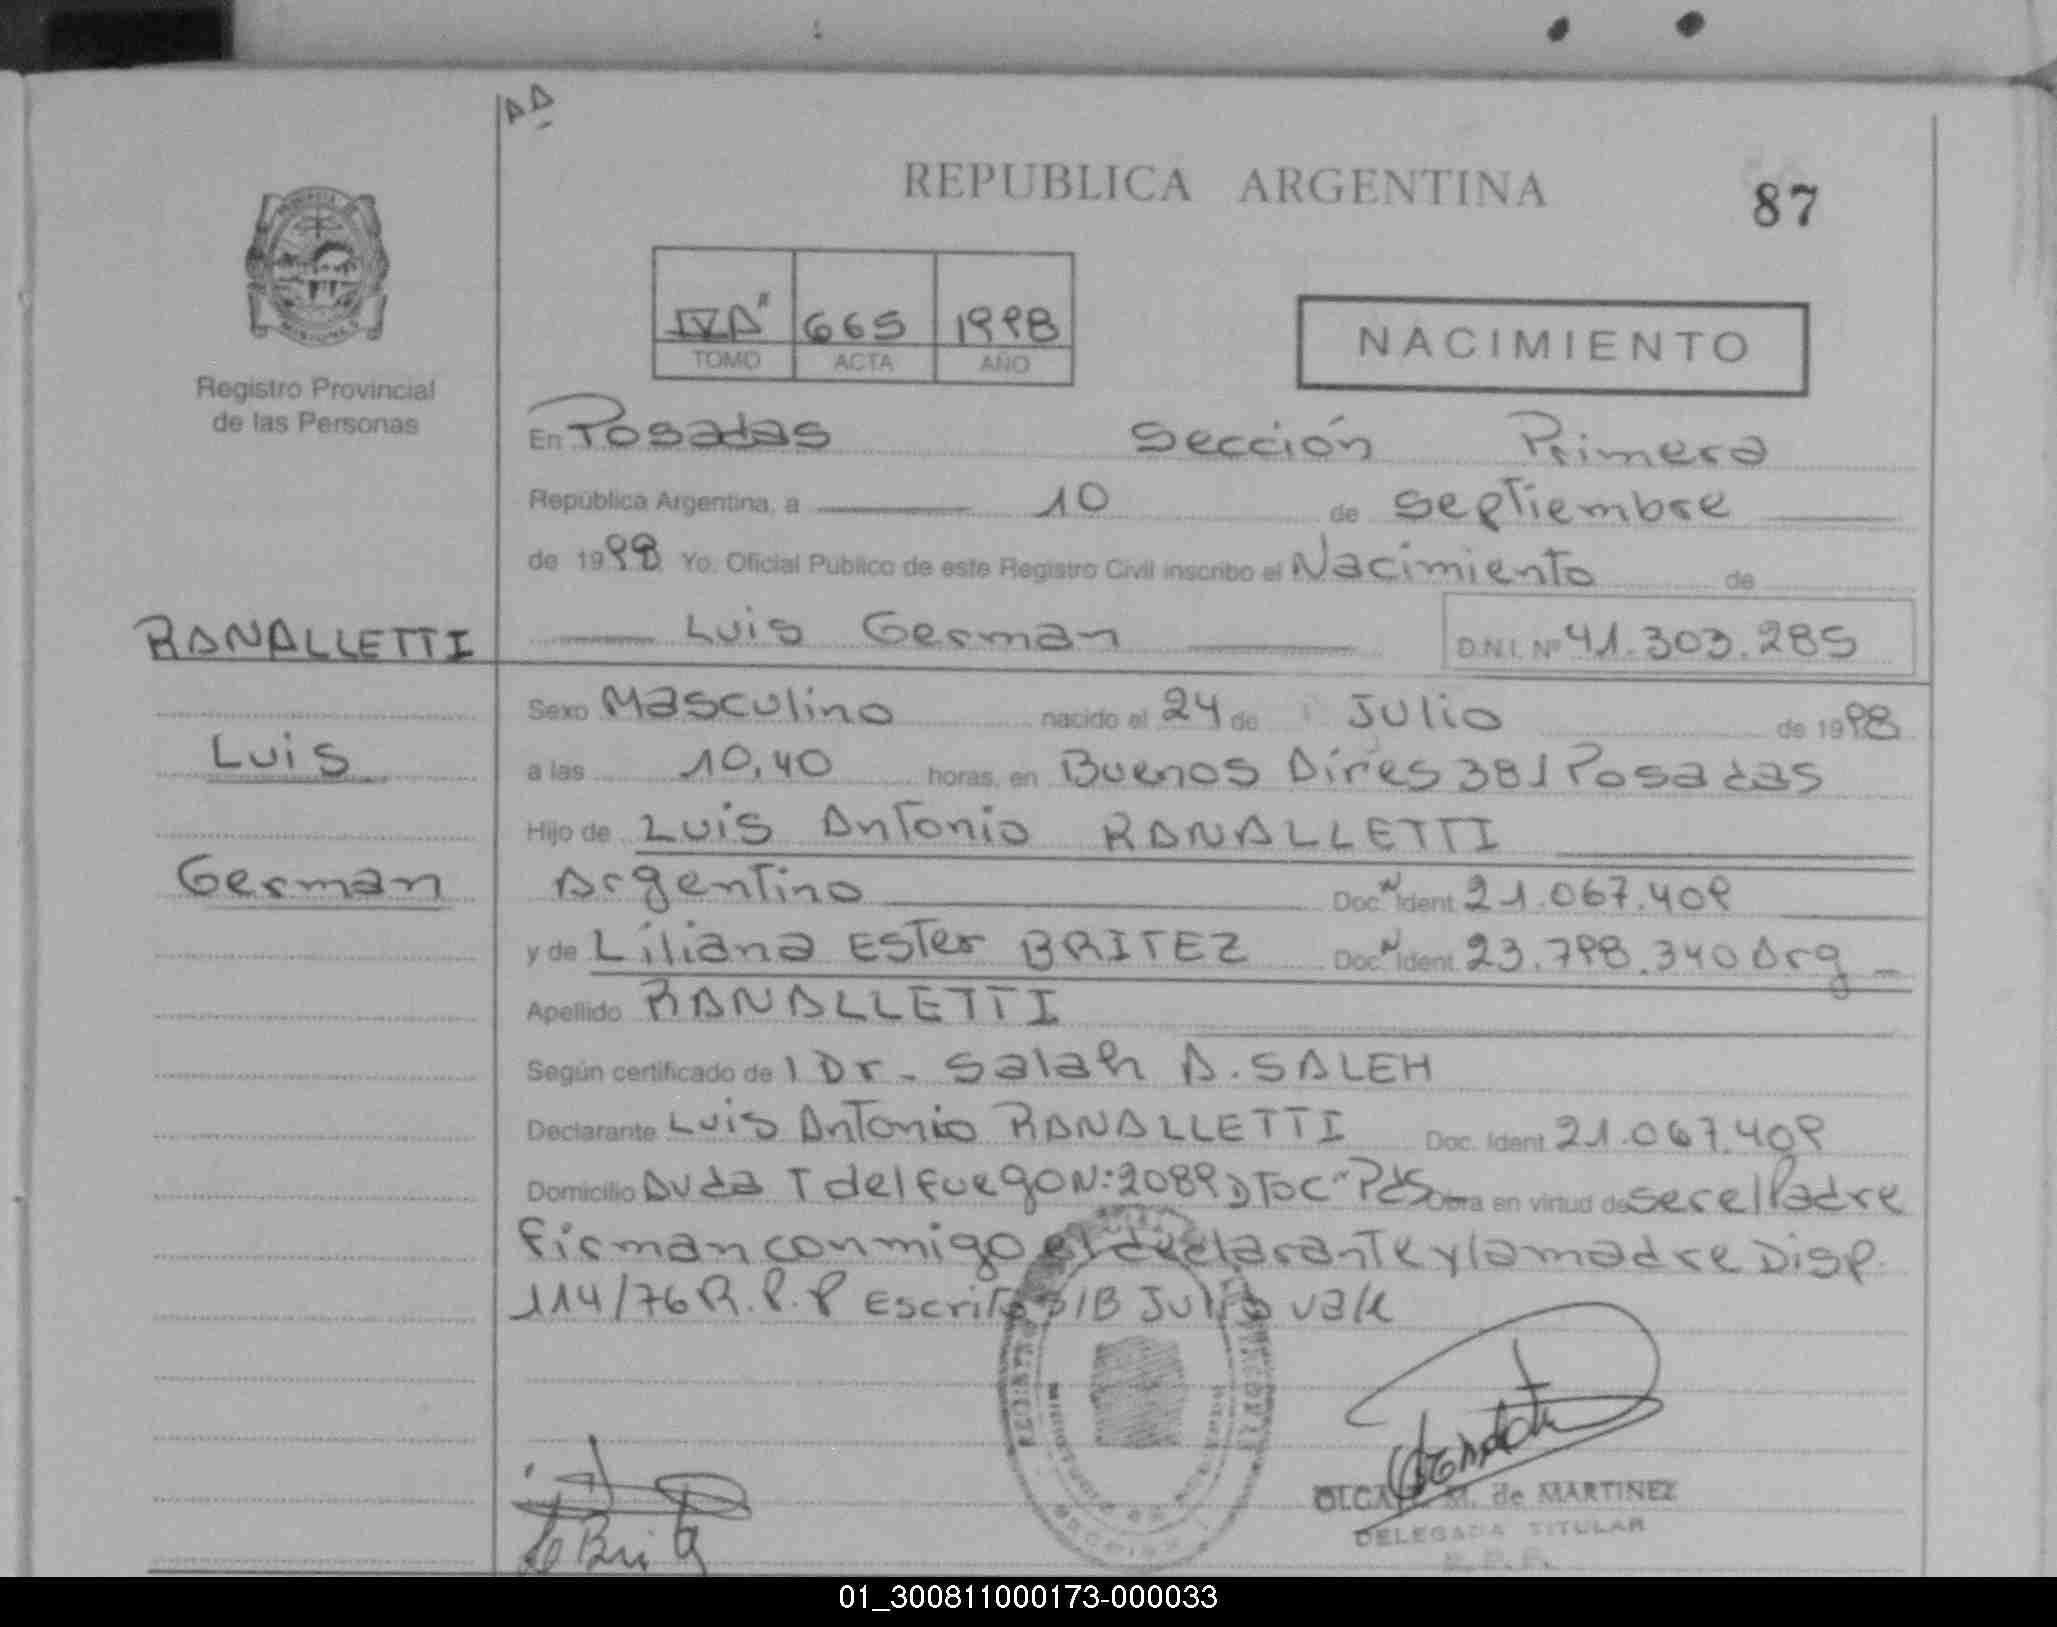 AA
REPUBLICA ARGENTINA
87
IVA" 665 1998
TOMO ACTA AÑO
NACIMIENTO
Registro Provincial
de las Personas
En Posadas Sección Primera
República Argentina, a 10 de Septiembre
de 1998 Yo, Oficial Público de este Registro Civil inscribo el Nacimiento de
RANALLETTI
Luis German D.N.I. Nº 41.303.285
Sexo Masculino nacido el 24 de Julio de 1998
Luis
a las 10,40 horas, en Buenos Aires 381 Posadas
Hijo de Luis Antonio RANALLETTI
German
Argentino Doc. Ident. 21.067.409
y de Liliana Ester BRITEZ Doc. Ident. 23.798.340 Arg
Apellido RANALLETTI
Según certificado de l Dr. Salah A. SALEH
Declarante Luis Antonio RANALLETTI Doc. Ident. 21.067.409
Domicilio Avda T del Fuego N: 2089 Pds Obra en virtud de ser el Padre
Firman conmigo el declarante y la madre Disp.
114/76 R.P.P Escrito S/B Julio vale
M. de MARTINEZ
DELEGADA TITULAR
R.P.P.
01_300811000173-000033